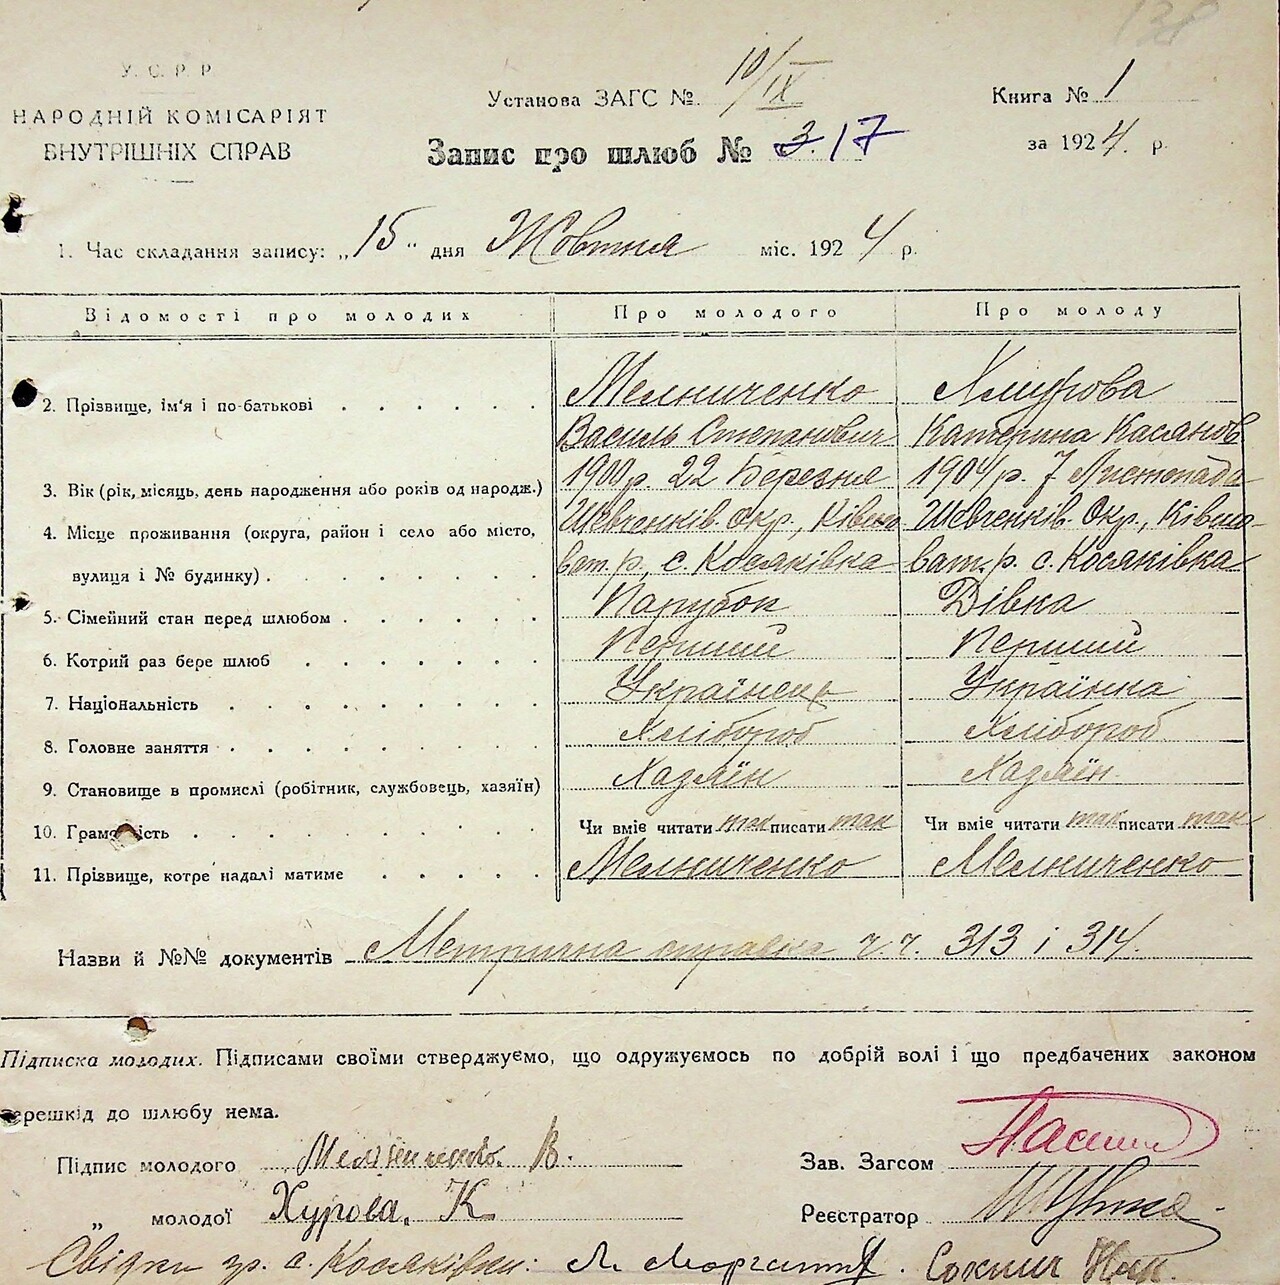 138
У. С. Р. Р
НАРОДНІЙ КОМІСАРІЯТ
ВНУТРІШНІХ СПРАВ
Установа ЗАГС № 10/IX
Запис про шлюб № 317
Книга № 1
за 1924. р.
1. Час складання запису: „15" дня Жовтня міс. 1924 р.
Відомості про молодих Про молодого Про молоду
2. Прізвище, ім'я і по-батькові Мельниченко
Василь Степанович Катерина Касянов
3. Вік (рік, місяць, день народження або років од народж.) 1900 р. 22 Березня 1904 р. 7 Листопада
4. Місце проживання (округа, район і село або місто, Шевченків. Окр., Ківша- Шевченків. Окр., Ківша-
вулиця і № будинку) ват. р, с. Косяківка ват. р. с. Косяківка
5. Сімейний стан перед шлюбом Парубок Дівка
6. Котрий раз бере шлюб Перший Перший
7. Національність Українець Українка
8. Головне заняття Хлібороб Хлібороб
9. Становище в промислі (робітник, службовець, хазяїн) Хазяїн Хазяїн.
10. Грамотність Чи вміє читати так писати так Чи вміє читати так писати так
11. Прізвище, котре надалі матиме Мельниченко Мельниченко
Назви й №№ документів Метрична справка ч.ч. 313 і 314.
Підписка молодих. Підписами своїми стверджуємо, що одружуємось по добрій волі і що предбачених законом
перешкід до шлюбу нема.
Підпис молодого В.
Зав. Загсом
„ молодої Хурова. К
Реєстратор
Свідки гр. с. Косяківки: